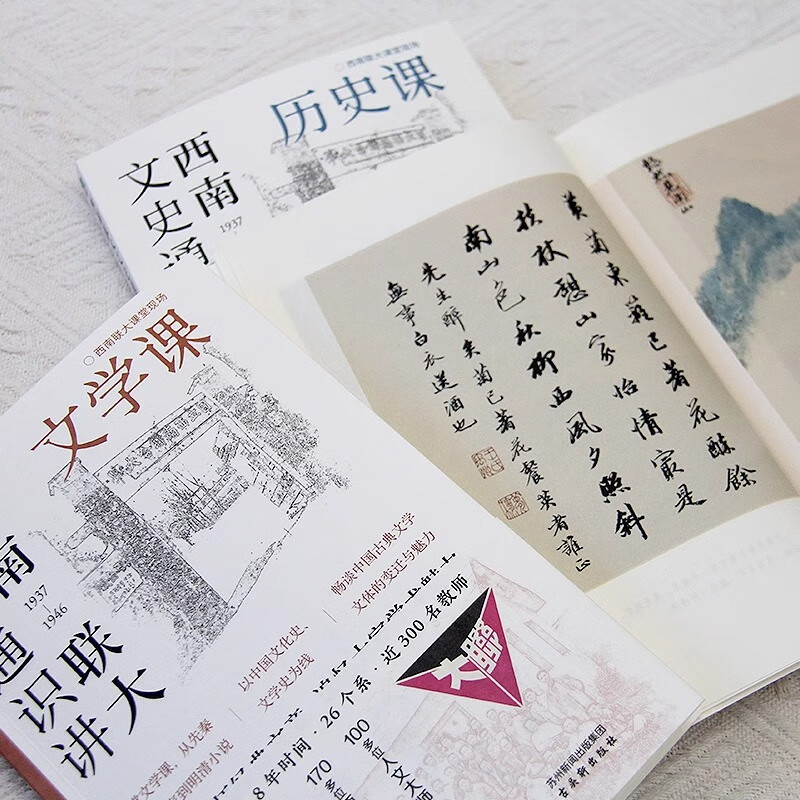 西南联大课堂现场
历史课
西南
文史通
1937
黄菊东篱已著花醉余
扶杖憩山家怡情最是
南山色秋柳西风夕照斜
先生醉矣菊已著花餐英者谁正
無事白衣送酒也
西南联大课堂现场
文学课
南
联大
通识讲
1937
1946
畅谈中国古典文学
文体的变迁与魅力
以中国文化史、
文学史为线
文学课,从先秦
到明清小说
8年时间·26个系·近300名教师
100多位人文大师
170多位
大聯
苏州新闻出版集团
古吴轩出版社